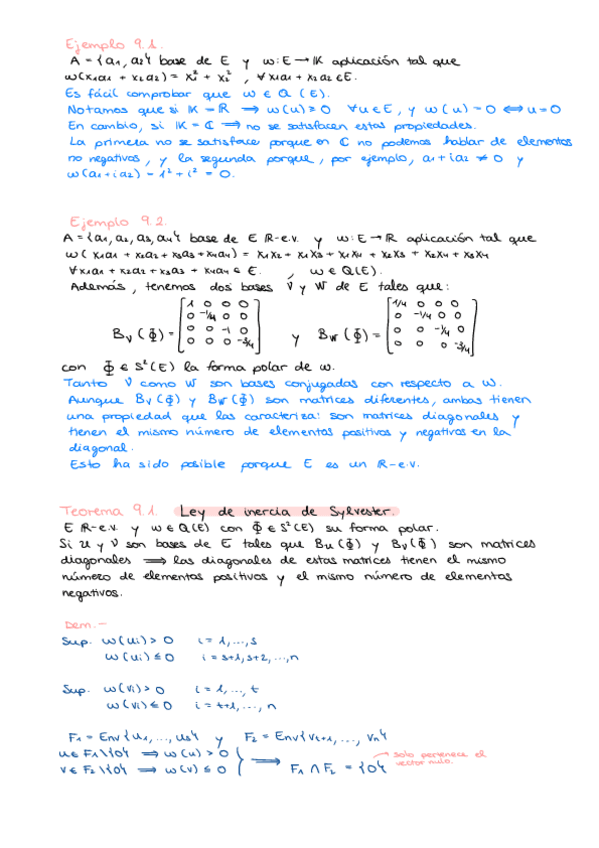 Ejemplo 9.1.
A = {a1, a2} base de E y w: E → K aplicación tal que
w(x1a1 + x2a2) = x1² + x2², ∀ x1a1 + x2a2 ∈ E.
Es fácil comprobar que w ∈ Q(E).
Notamos que si K = R ⟹ w(u) ≥ 0 ∀u ∈ E, y w(u) = 0 ⟺ u = 0
En cambio, si K = C ⟹ no se satisfacen estas propiedades.
La primera no se satisface porque en C no podemos hablar de elementos
no negativos, y la segunda porque, por ejemplo, a1 + i a2 ≠ 0 y
w(a1 + i a2) = 1² + i² = 0.
Ejemplo 9.2.
A = {a1, a2, a3, a4} base de E R-e.v. y w: E → R aplicación tal que
w(x1a1 + x2a2 + x3a3 + x4a4) = x1x2 + x1x3 + x1x4 + x2x3 + x2x4 + x3x4
∀ x1a1 + x2a2 + x3a3 + x4a4 ∈ E. , w ∈ Q(E).
Además, tenemos dos bases V y W de E tales que:
1 0 0 0 1/4 0 0 0
0 -1/4 0 0 0 -1/4 0 0
B_V(Φ) = y B_W(Φ) =
0 0 -1 0 0 0 -1/4 0
0 0 0 -3/4 0 0 0 -3/4
con Φ ∈ S²(E) la forma polar de w.
Tanto V como W son bases conjugadas con respecto a w.
Aunque B_V(Φ) y B_W(Φ) son matrices diferentes, ambas tienen
una propiedad que las caracteriza: son matrices diagonales y
tienen el mismo número de elementos positivos y negativos en la
diagonal.
Esto ha sido posible porque E es un R-e.v.
Teorema 9.1. Ley de inercia de Sylvester.
E R-e.v. y w ∈ Q(E) con Φ ∈ S²(E) su forma polar.
Si U y V son bases de E tales que B_U(Φ) y B_V(Φ) son matrices
diagonales ⟹ las diagonales de estas matrices tienen el mismo
número de elementos positivos y el mismo número de elementos
negativos.
Dem.-
Sup. w(ui) > 0 i = 1, ..., s
w(ui) ≤ 0 i = s+1, s+2, ..., n
Sup. w(vi) > 0 i = 1, ..., t
w(vi) ≤ 0 i = t+1, ..., n
F1 = Env{u1, ..., us} y F2 = Env{vt+1, ..., vn}
u ∈ F1\{0} ⟹ w(u) > 0
v ∈ F2\{0} ⟹ w(v) ≤ 0 } ⟹ F1 ∩ F2 = {0}
→ solo pertenece el
vector nulo.